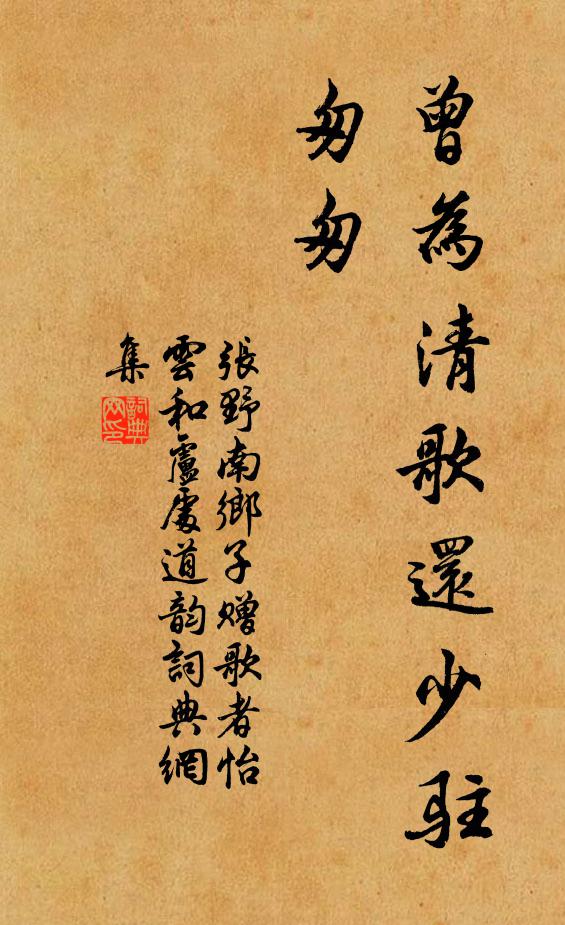 曾為清歌還少駐
匆匆
張野南鄉子贈歌者怡
雲和盧處道韵詞典網
集
詞典
网印